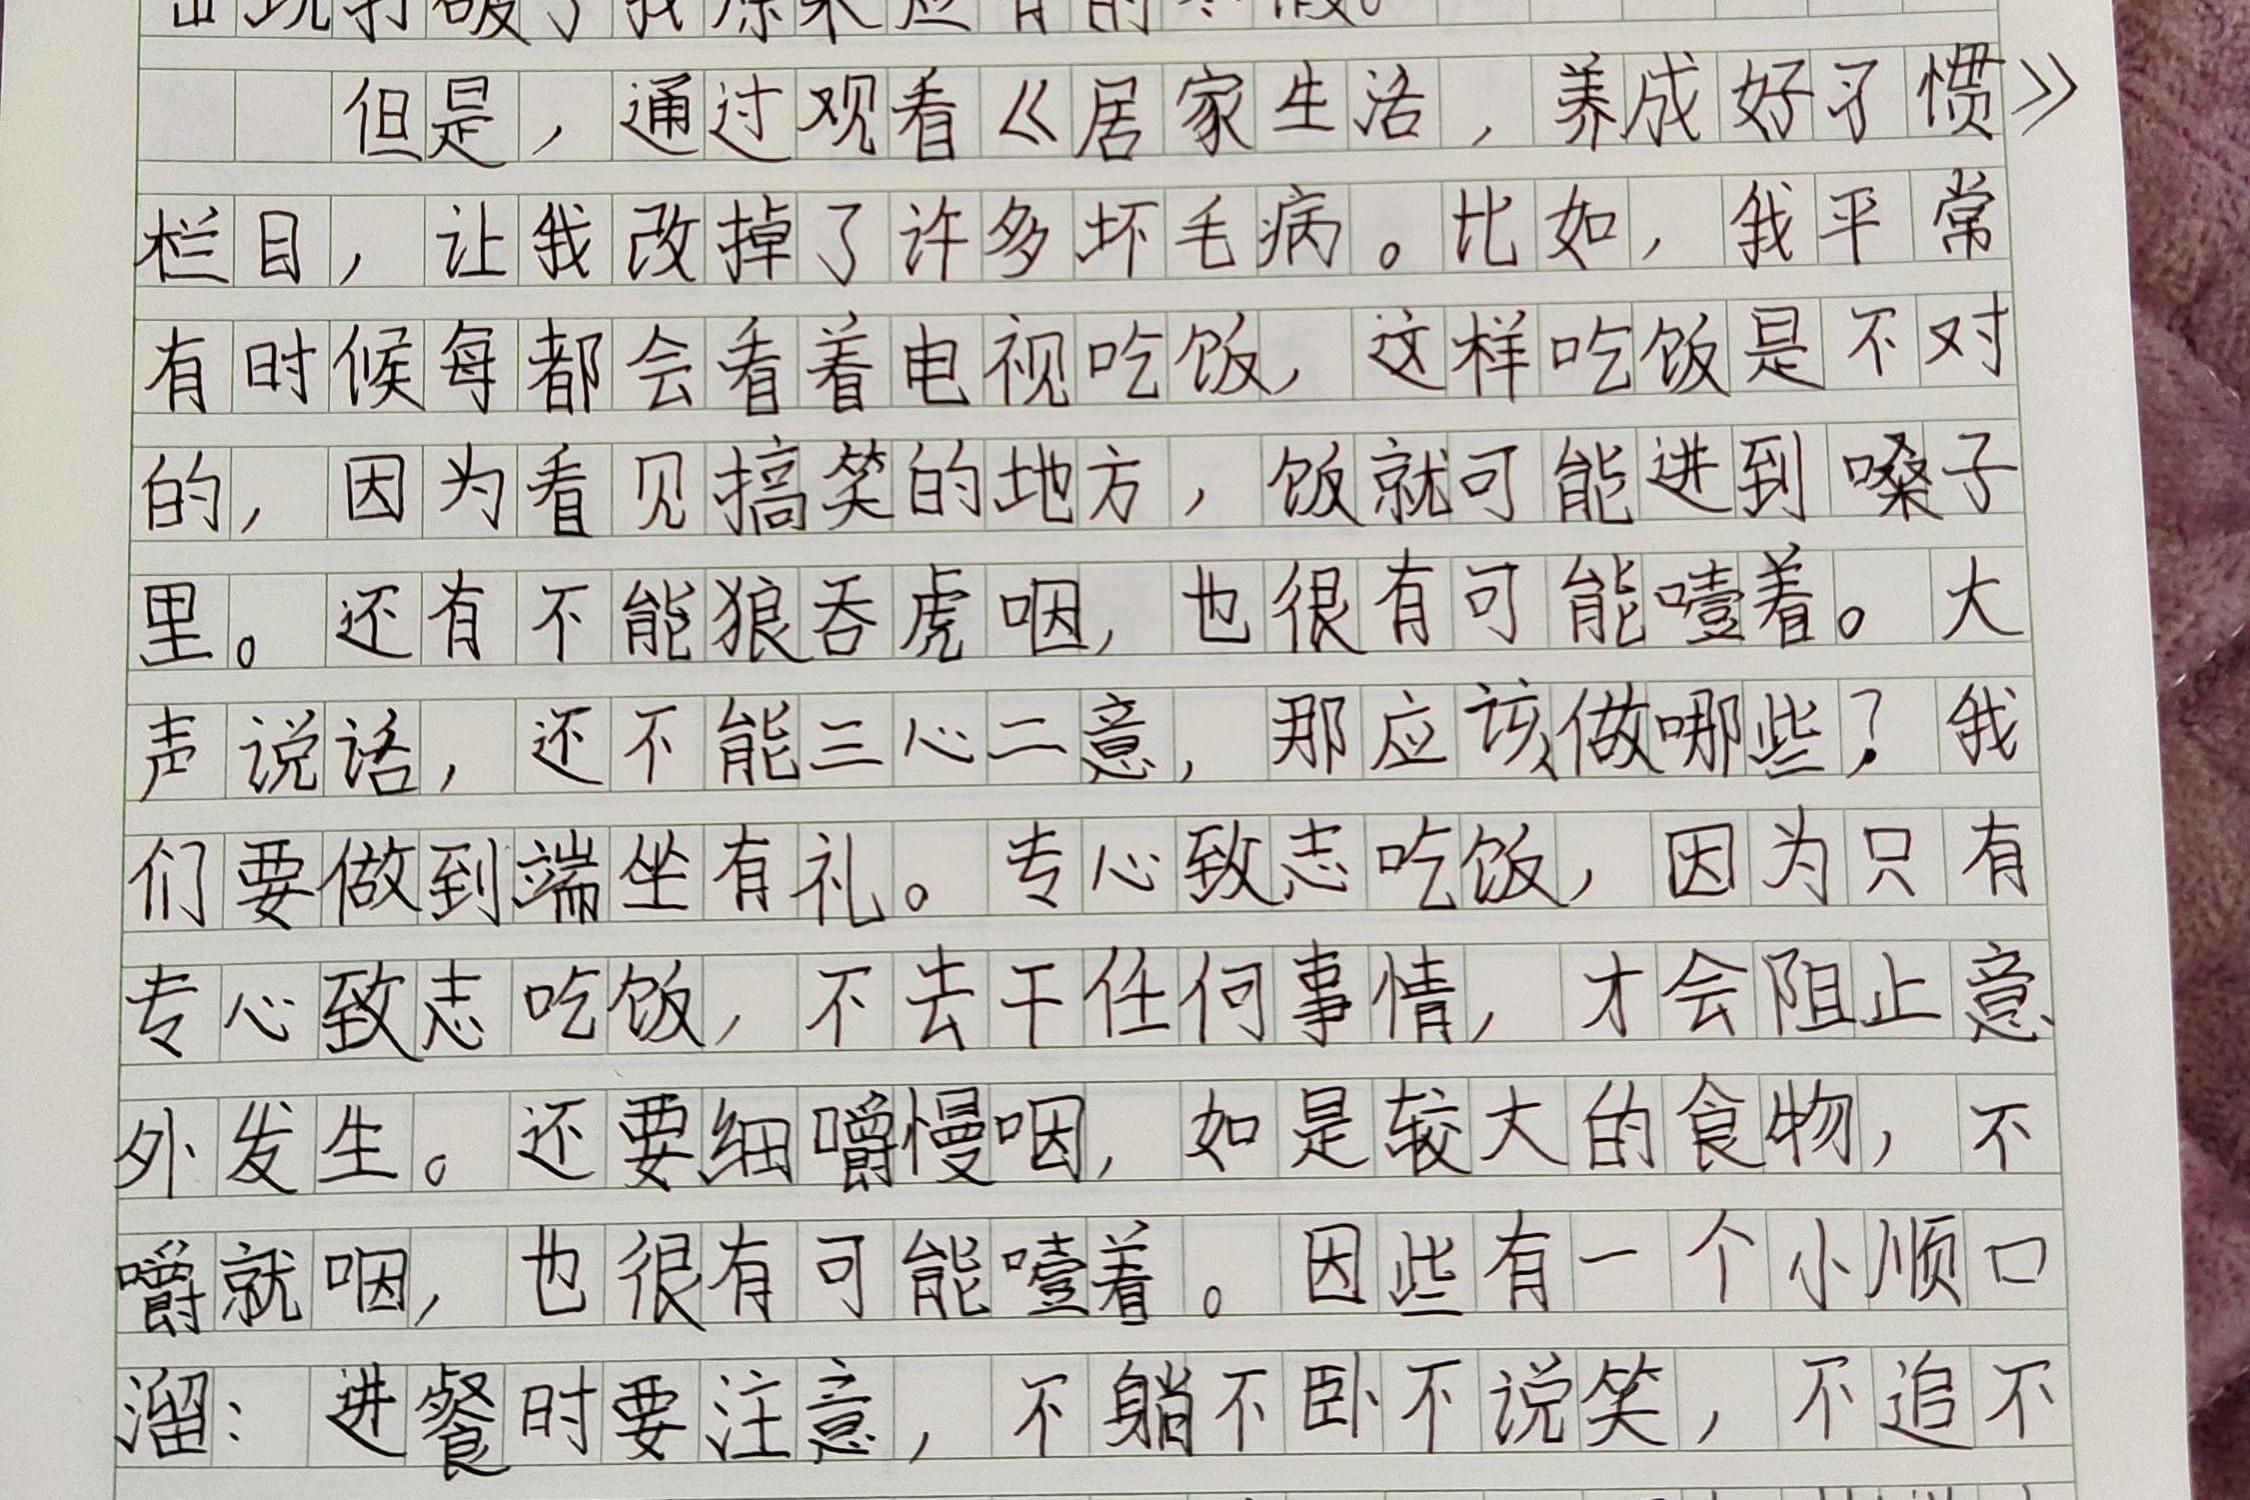 出现打破了我原来应有的寒假。
但是，通过观看《居家生活，养成好习惯》
栏目，让我改掉了许多坏毛病。比如，我平常
有时候每都会看着电视吃饭，这样吃饭是不对
的，因为看见搞笑的地方，饭就可能进到嗓子
里。还有不能狼吞虎咽，也很有可能噎着。大
声说话，还不能三心二意，那应该做哪些？我
们要做到端坐有礼。专心致志吃饭，因为只有
专心致志吃饭，不去干任何事情，才会阻止意
外发生。还要细嚼慢咽，如是较大的食物，不
嚼就咽，也很有可能噎着。因些有一个小顺口
溜：进餐时要注意，不躺不卧不说笑，不追不